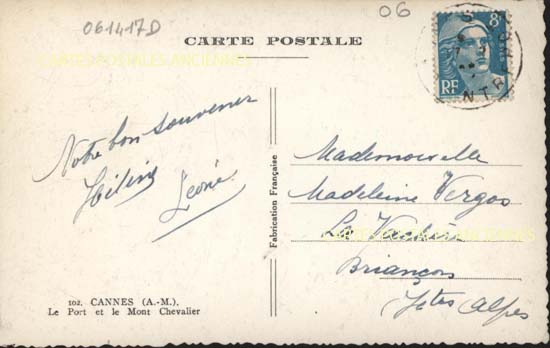 061417D
06
CARTE POSTALE
CARTES POSTALES ANCIENNES
8F
POSTES
RF
Notre bon souvenir
Léonie
Fabrication Française
Mademoiselle
Madeleine Vergos
La
Briançon
Htes Alpes
102. CANNES (A.-M.).
Le Port et le Mont Chevalier